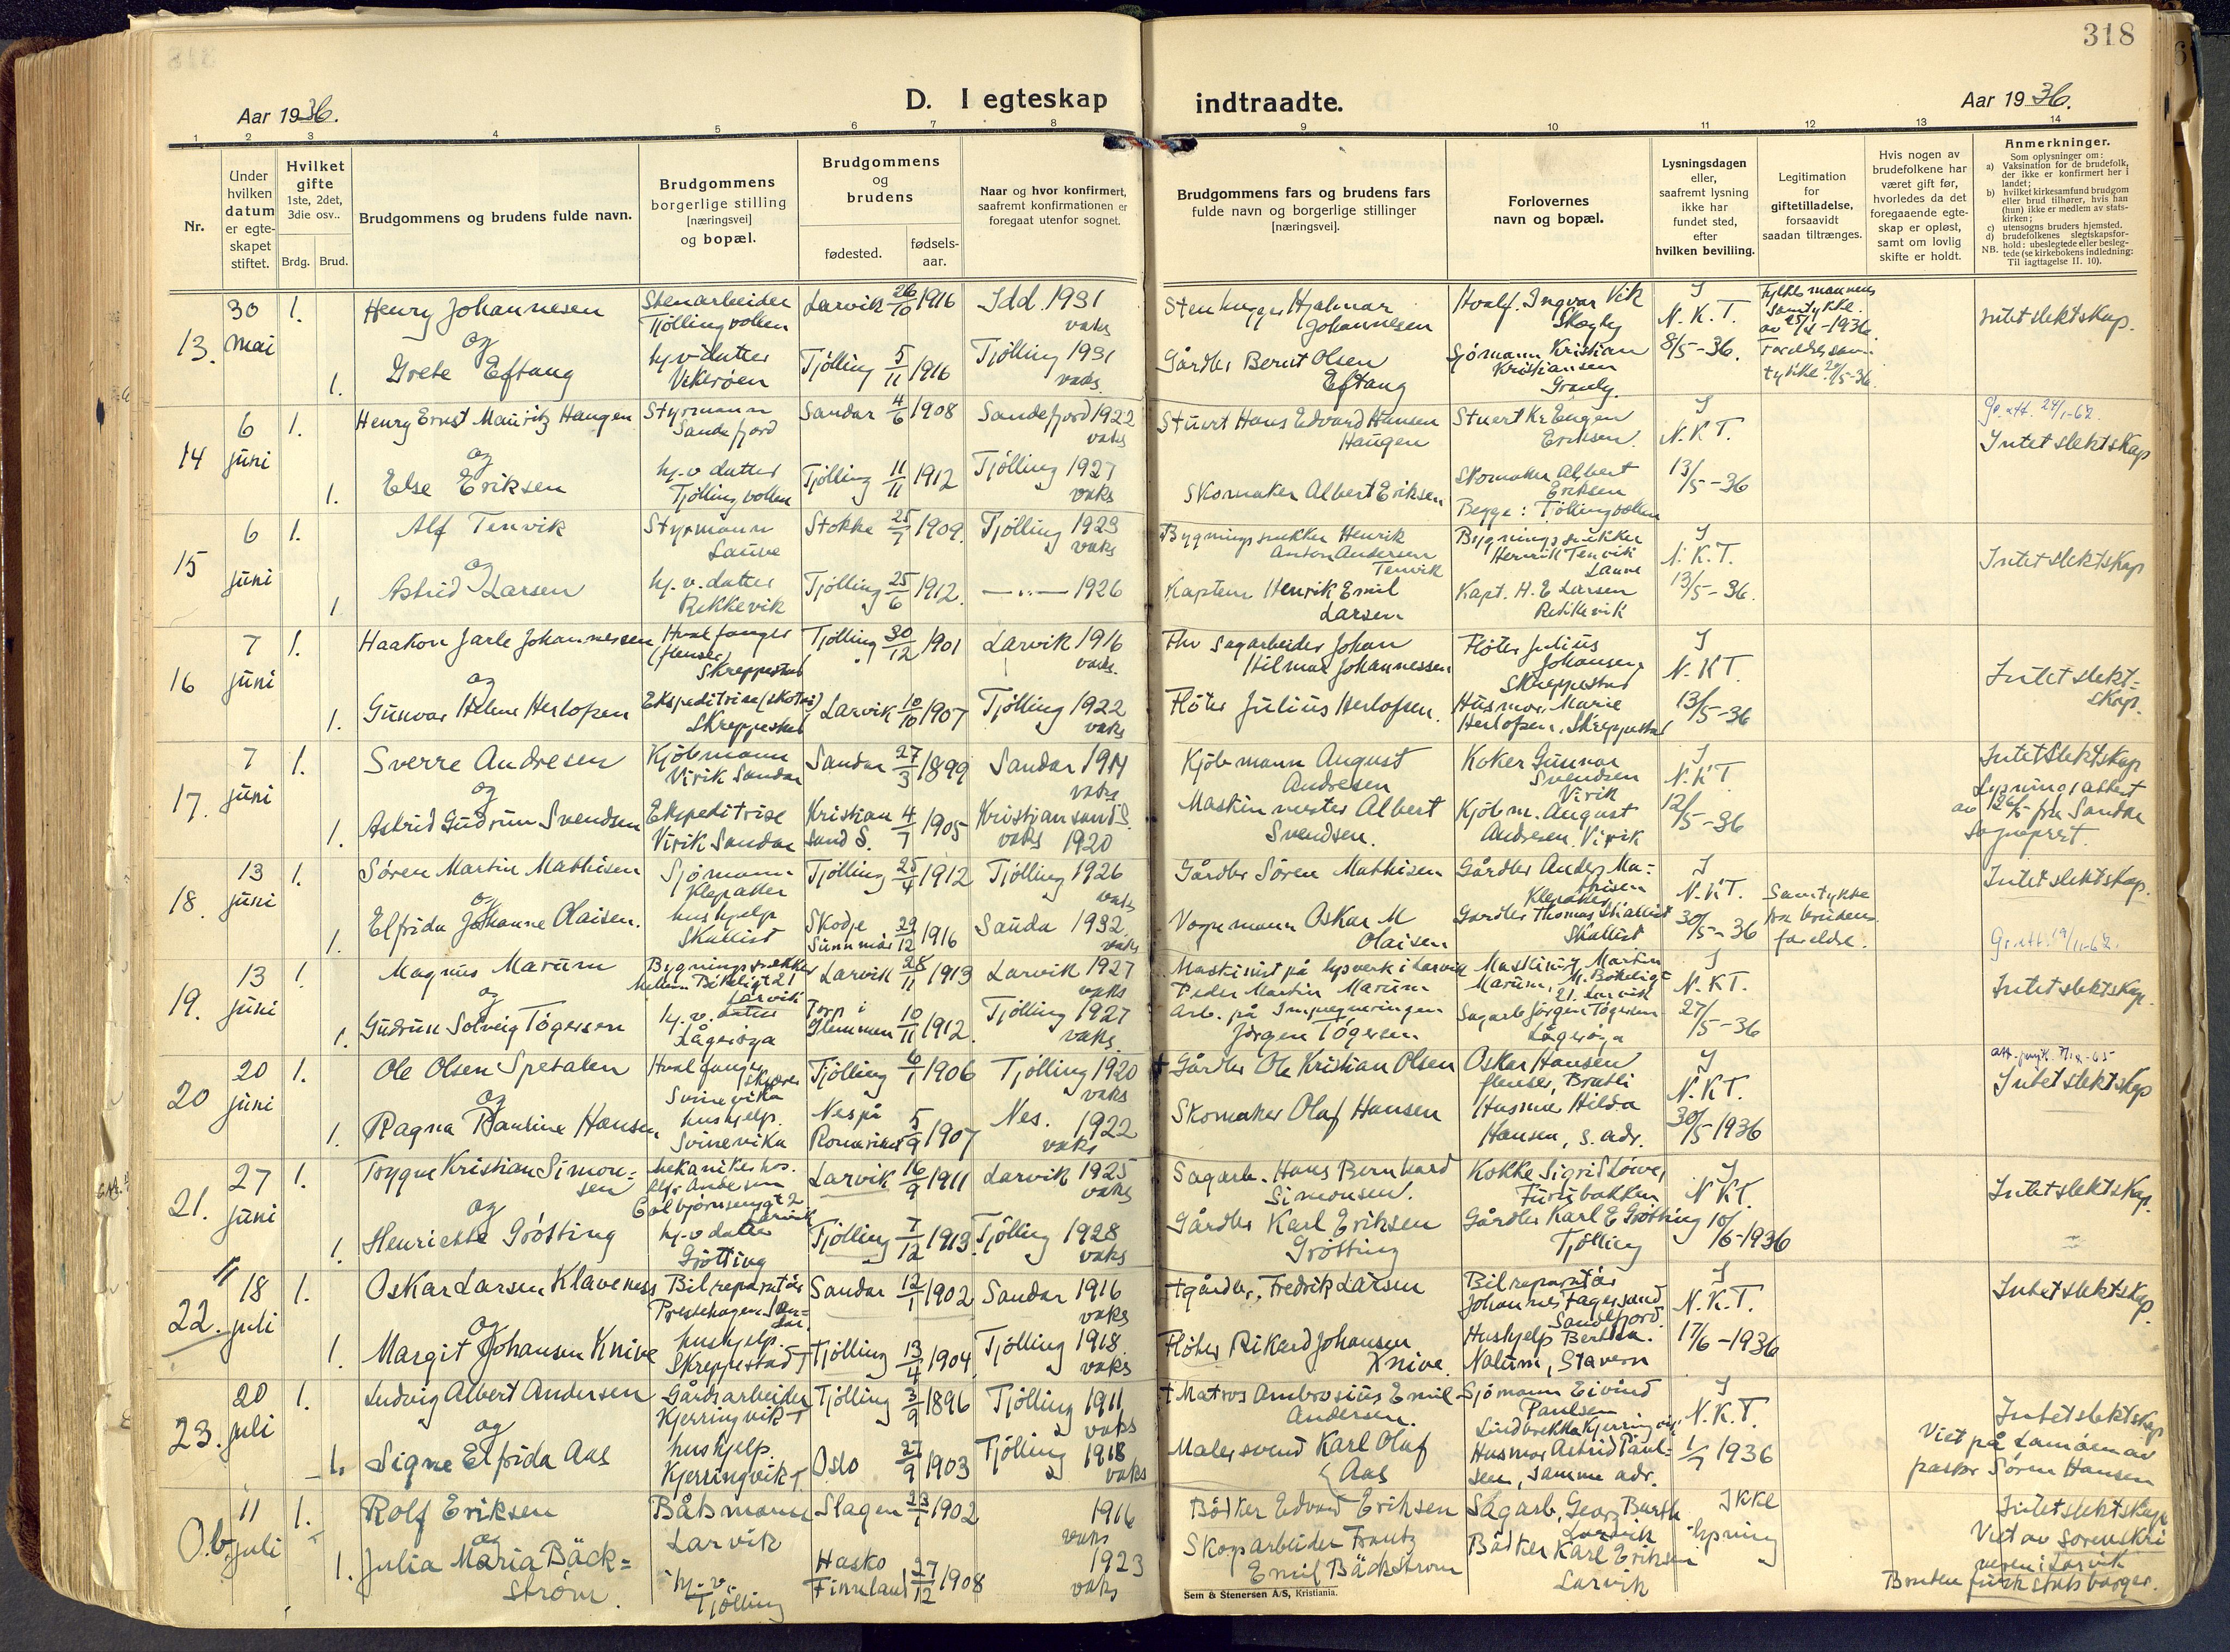 318
Aar 1936.
D. I egteskap indtraadte.
Aar 1936.
1 2 3 4 5 6 7 8 9 10 11 12 13 14
Nr.
Under hvilken datum er egteskapet stiftet.
Hvilket gifte 1ste, 2det, 3die osv..
Brdg. Brud.
Brudgommens og brudens fulde navn.
Brudgommens borgerlige stilling [næringsvei] og bopæl.
Brudgommens og brudens
fødested.
fødsels-aar.
Naar og hvor konfirmert, saafremt konfirmationen er foregaat utenfor sognet.
Brudgommens fars og brudens fars fulde navn og borgerlige stillinger [næringsvei].
Forlovernes navn og bopæl.
Lysningsdagen eller, saafremt lysning ikke har fundet sted, efter hvilken bevilling.
Legitimation for giftetilladelse, forsaavidt saadan tiltrænges.
Hvis nogen av brudefolkene har været gift før, hvorledes da det foregaaende egteskap er opløst, samt om lovlig skifte er holdt.
Anmerkninger.
Som oplysninger om:
a) Vaksination for de brudefolk, der ikke er konfirmert her i landet;
b) hvilket kirkesamfund brudgom eller brud tilhører, hvis han (hun) ikke er medlem av statskirken;
c) utensogns bruders hjemsted.
d) brudefolkenes slegtskapsforhold: ubeslegtede eller beslegtede (se kirkebokens indledning:
NB. Til iagttagelse II. 10).
13. 30 mai 1. Henry Johannesen Stenarbeider Tjöllingvollen Larvik 26/10 1916 Idd 1931 vaks Stenhugger Hjalmar Johannesen Hvalf. Ingvar Vik Skogly I N.K.T. 8/5-36. Fylkesmannens samtykke av 25/4-1936 Intet slektskap.
og
1. Grete Eftang hj.v. datter Vikerøen Tjølling 5/11 1916 Tjølling 1931 vaks. Gårdbr Bernt Olsen Eftang Sjömann Kristian Kristiansen Granly.
14 6 juni 1. Henry Ernst Mauritz Haugen Styrmann Sandefjord Sandar 4/6 1908 Sandefjord 1922 vaks Stuert Hans Edvard Hansen Haugen Stuert Kr Eugen Eriksen. I N.K.T. 13/5-36 Intet slektskap
og
1. Else Eriksen hj.v. datter Tjöllingvollen Tjölling 11/11 1912 Tjølling 1927 vaks Skomaker Albert Eriksen Skomaker Albert Eriksen Begge: Töllingvollen
15 6 juni 1. Alf Tenvik Styrmann Lauve Stokke 25/7 1909. Tjølling 1923 vaks Bygningssnekker Henrik Anton Andersen Tenvik Bygningssnekker Henrik Tenvik Lauve I N.K.T. 13/5-36. Intet slektskap
og
1 Astrid Larsen hj.v. datter Rekkevik Tjölling 25/6 1912. —"— 1926 Kaptein Henrik Emil Larsen Kapt. H. E Larsen Rekkevik
16 7 juni 1. Haakon Jarle Johannessen Hvalfanger (flenser) Skreppestad Tjölling 30/12 1901 Larvik 1916 vaks. Fhv Sagarbeider Johan Hilmar Johannessen Fløter Julius Johansen, Skreppestad I N.K.T. 13/5-36 Intet slektskap.
og
1. Gunvor Helene Herlofsen Ekspeditrise (skotoi) Skreppestad Larvik 10/10 1907 Tjölling 1922 vaks Fløter Julius Herlofsen. Husmor Marie Herlofsen, Skreppestad
17. 7 juni 1. Sverre Andresen Kjöbmann Virik Sandar Sandar 27/3 1899 Sandar 1914 vaks Kjöbmann August Andresen Koker Gunnar Svendsen Virik I N.K.T. 12/5-36 Intet Slektskap Lysningsattest av 26/5 fra Sandar Sogneprest.
og
1. Astrid Gudrun Svendsen Ekspeditrise Virik Sandar Kristiansand S. 4/7 1905 Kristjansand S. vaks 1920 Maskinmester Albert Svendsen. Kjöbm. August Andresen. Virik
18. 13 juni 1. Søren Martin Mathisen Sjömann Klepaker Tjölling 25/4 1912 Tjölling 1926 vaks Gårdbr Søren Mathisen Gårdbr Anders Mathisen Klepaker I N.K.T. 30/5-36 Samtykke fra brudens foreldre. Intet slektskap.
og
1. Elfrida Johanne Olaisen. hushjelp Skallist Skodje Sunnmör 29/12 1916 Sauda 1932. vaks Vognmann Oskar M Olaisen Gardbr Thomas Skallist Skallist
19. 13 juni 1. Magnus Marum Bygningssnekker Mellem Bökeligt 21 Larvik Larvik 28/11 1913 Larvik 1927 vaks Maskinist på lysverk i Larvik Peder Martin Marum Maskinist Martin Marum, M. Bökeligt 21. Larvik I N.K.T. 27/5-36 Intet slektskap.
og
1. Gudrun Solveig Tögersen hj.v. datter Lågeröya Torp i Glemmen 10/11 1912. Tjölling 1927 vaks. Arb. på Impregneringen Jörgen Tögersen Sagarb Jörgen Tögersen Lågeröya
20 20 juni 1. Ole Olsen Spetalen Hvalfanger (skytter) Svinevika Tjölling 6/1 1906 Tjölling 1920 vaks + Gårdbr Ole Kristian Olsen Oskar Hansen flenser, Bratli I N.K.T. 30/5 1936 Intet slektskap
og
1. Ragna Pauline Hansen hushjelp. Svinevika Nes på Romerike 5/9 1907 Nes. 1922 vaks Skomaker Olaf Hansen Husmor Hilda Hansen, s. adr.
21. 27 juni 1. Trygve Kristian Simonsen mekaniker hos. Larvik Larvik 16/9 1911 Larvik 1925 vaks Sagarb. Hans Bernhard Simonsen. Kokke Sigrid Löwe, Furubakken I N.K.T. 10/6-1936 Intet slektskap.
og
1. Henriette Grötting hj.v datter Gjötting Tjölling 7/12 1913. Tjölling 1928 vaks Gårdbr Karl Eriksen Grötting Gårdbr Karl E Gröttting Tjölling
22. 18 juli 1. Oskar Larsen Klaveness Bilreparatör Prestehagen Sandar. Sandar 12/1 1902 Sandar 1916 vaks + gårdbr, Fredrik Larsen Bilreparatör Johannes Fagersand Sandefjord. I N.K.T. 17/6-1936 Intet slektskap.
og
1. Margit Johansen Knive hushjelp. Skreppestad T Tjölling 13/4 1904. Tjölling 1918. vaks Flöter Rikard Johansen Knive. Hushjelp Bertha. Nalum, Stavern
23. 20 juli 1. Ludvig Albert Andersen Gårdsarbeider Kjerringvik T Tjölling 3/9 1896 Tjölling 1911, vaks + Matros Ambrosius Emil Andersen. Sjömann Eivind Paulsen Lindbrekka Kjerringvik I N.K.T. 1/7 1936 Intet slektskap Viet på Lamøen av pastor Søren Hansen
og
1. Signe Elfrida Aas hushjelp. Kjerringvik T. Oslo 27/9 1903 Tjölling 1918 vaks Malersvend Karl Olaf Aas Husmor Astrid Paulsen, samme adr.
O.b. 11 juli 1. Rolf Eriksen Båtsmann Larvik Slagen 23/1 1902 1916 vaks Bödker Edvard Eriksen Sagarb, Georg Barth Larvik Ikke lysning Intet slektskap Viet av sorenskriveren i Larvik
og
1. Julia Maria Bäckström. hj.v. Tjölling Hasko Finnland 27/12 1908 1923 vaks Skogsarbeider Frantz Emil Bäckström Bödker Karl Eriksen Larvik Bruden finsk statsborger.
Sem & Stenersen A/S, Kristiania.